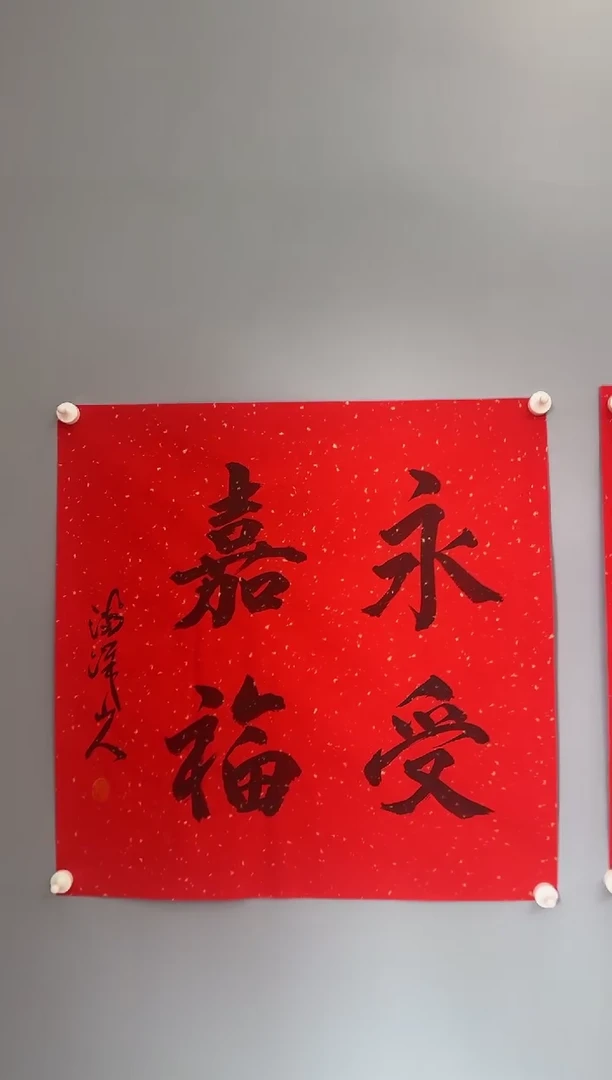 永受
嘉福
海洋山人